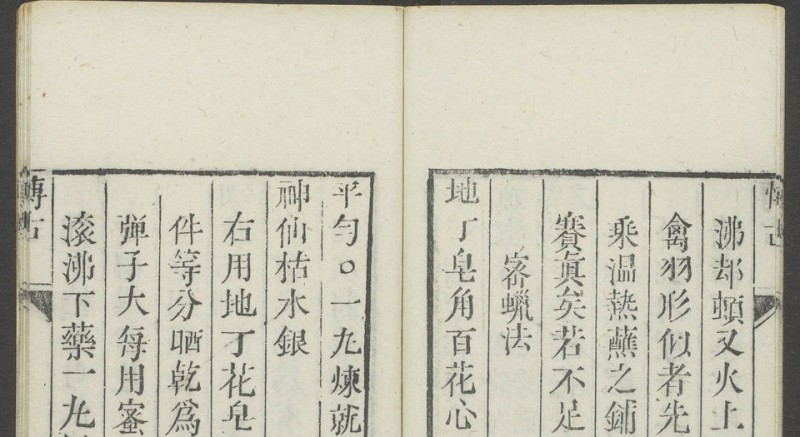 沸却頓又火上
禽羽形似者先
乘温熱蘸之鋪
賽眞矣若不足
宻蠟法
地丁皂角百花心
平勻○一九煉就
神仙枯水銀
右用地丁花皂
件等分晒乾爲
弹子大每用蜜
滚沸下藥一九